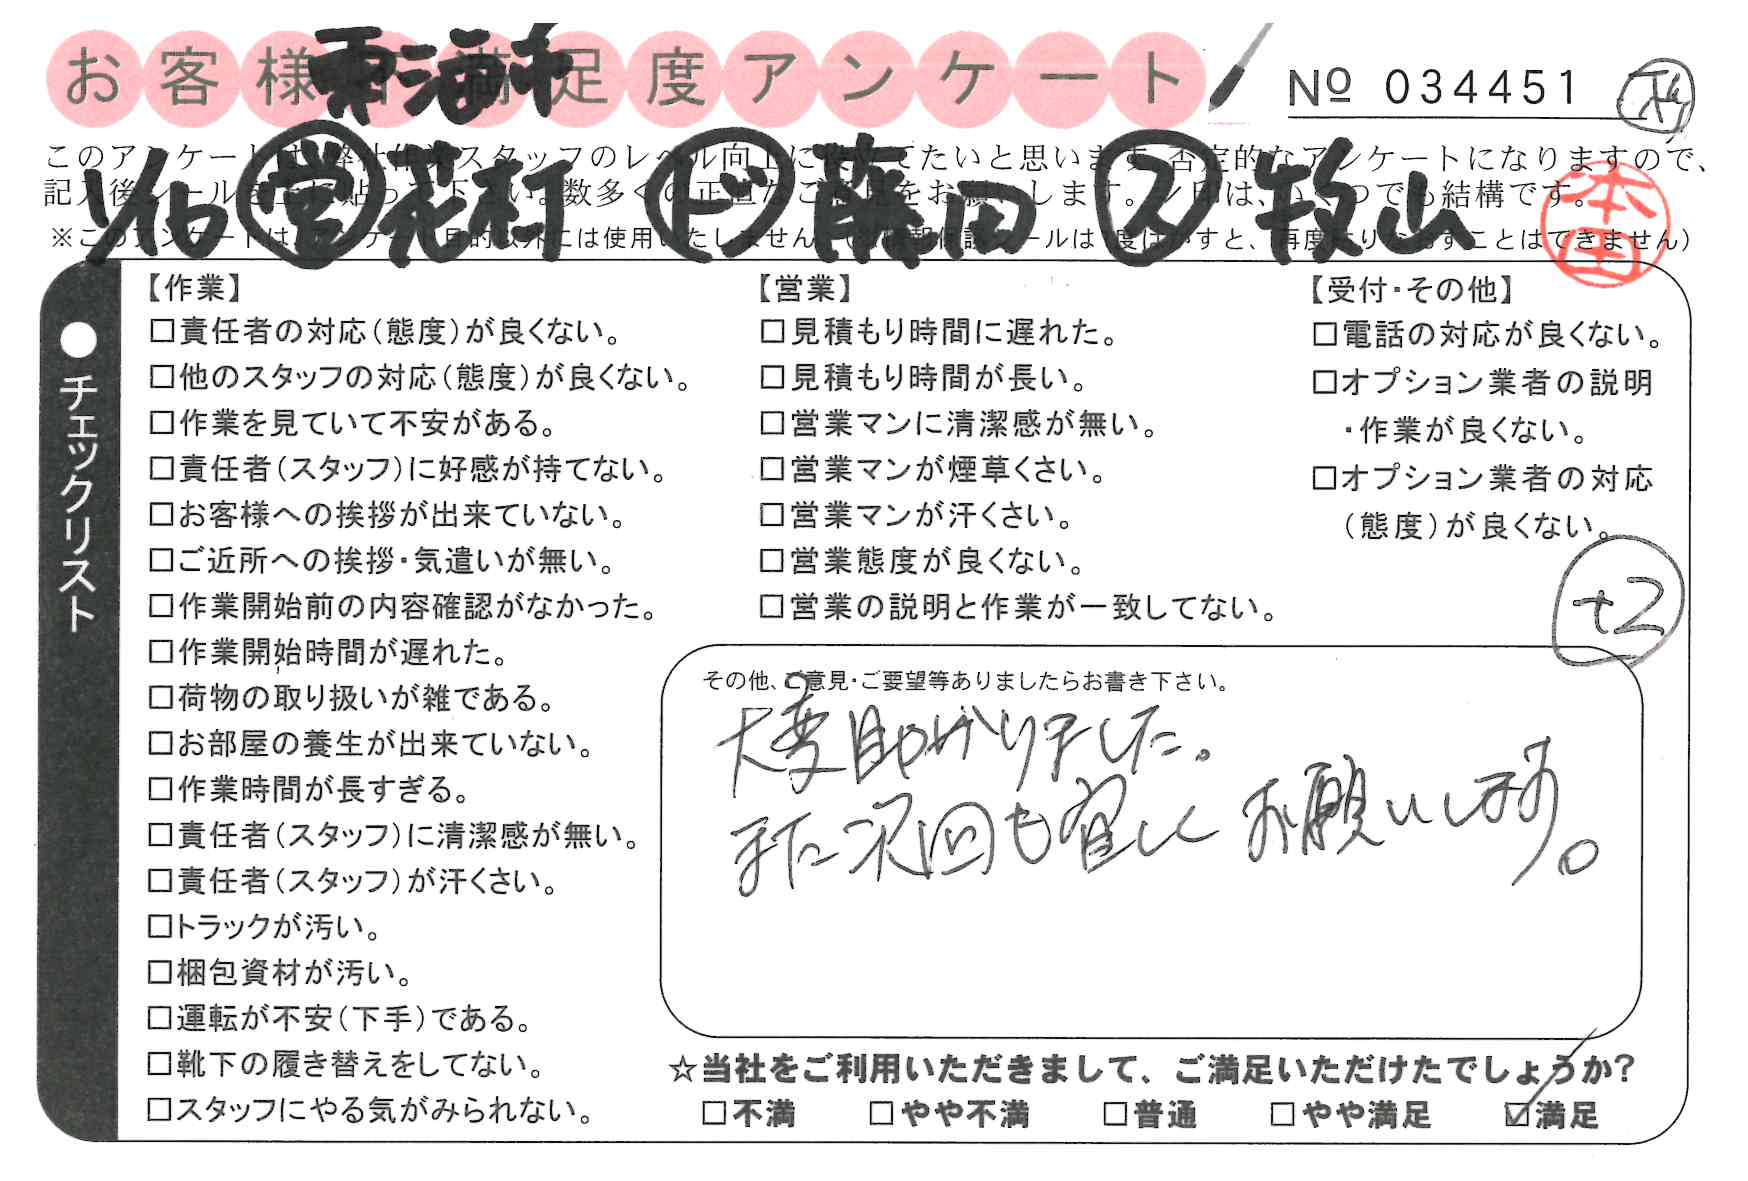 お客様満足度アンケート
東海市
Nº 034451
このアンケートは、弊社作業スタッフのレベル向上に役立てたいと思います。否定的なアンケートになりますので、
記入後シールを上に貼って下さい。数多くの正直なご意見をお願いします。レ印は、いくつでも結構です。
1/16 営 花村 ド 藤田 ス 牧山
本田
※このアンケートは、アンケート目的以外には使用いたしません。
シールは1度はがすと、再度はりなおすことはできません)
●チェックリスト
【作業】
□責任者の対応(態度)が良くない。
□他のスタッフの対応(態度)が良くない。
□作業を見ていて不安がある。
□責任者(スタッフ)に好感が持てない。
□お客様への挨拶が出来ていない。
□ご近所への挨拶・気遣いが無い。
□作業開始前の内容確認がなかった。
□作業開始時間が遅れた。
□荷物の取り扱いが雑である。
□お部屋の養生が出来ていない。
□作業時間が長すぎる。
□責任者(スタッフ)に清潔感が無い。
□責任者(スタッフ)が汗くさい。
□トラックが汚い。
□梱包資材が汚い。
□運転が不安(下手)である。
□靴下の履き替えをしてない。
□スタッフにやる気がみられない。
【営業】
□見積もり時間に遅れた。
□見積もり時間が長い。
□営業マンに清潔感が無い。
□営業マンが煙草くさい。
□営業マンが汗くさい。
□営業態度が良くない。
□営業の説明と作業が一致してない。
【受付・その他】
□電話の対応が良くない。
□オプション業者の説明
・作業が良くない。
□オプション業者の対応
(態度)が良くない。
+2
その他、ご意見・ご要望等ありましたらお書き下さい。
大変助かりました。
また次回も宜しくお願いします。
☆当社をご利用いただきまして、ご満足いただけたでしょうか?
□不満 □やや不満 □普通 □やや満足 ☑満足